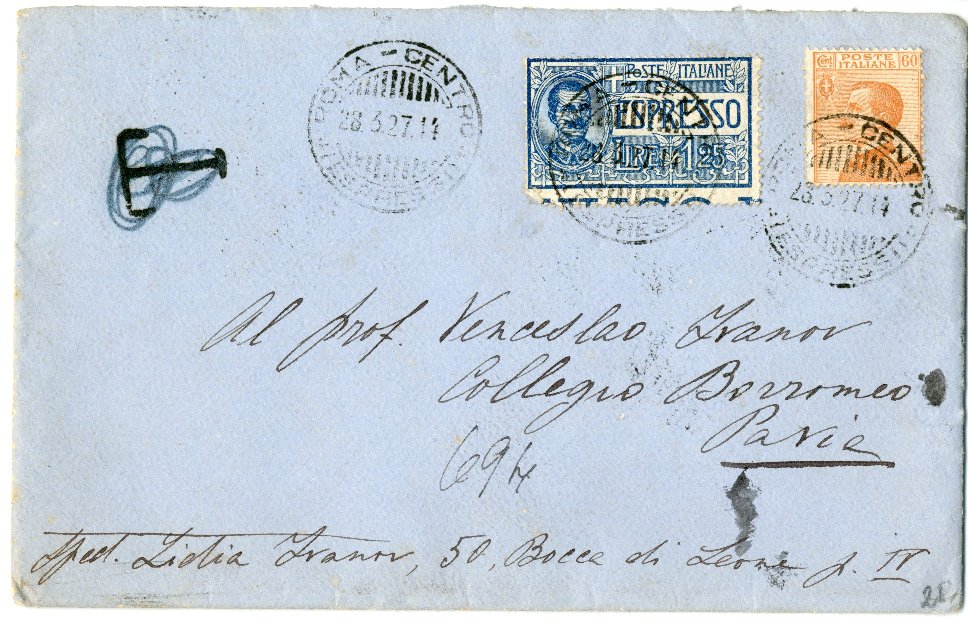 T
ROMA - CENTRO
28.3.27.14
POSTE ITALIANE
ESPRESSO
LIRE 1,25
POSTE ITALIANE
60
ROMA - CENTRO
28.3.27.14
Al prof. Venceslao Ivanov
Collegio Borromeo
Pavia
694
Sped. Lidia Ivanov, 50, Bocca di Leone p. IV